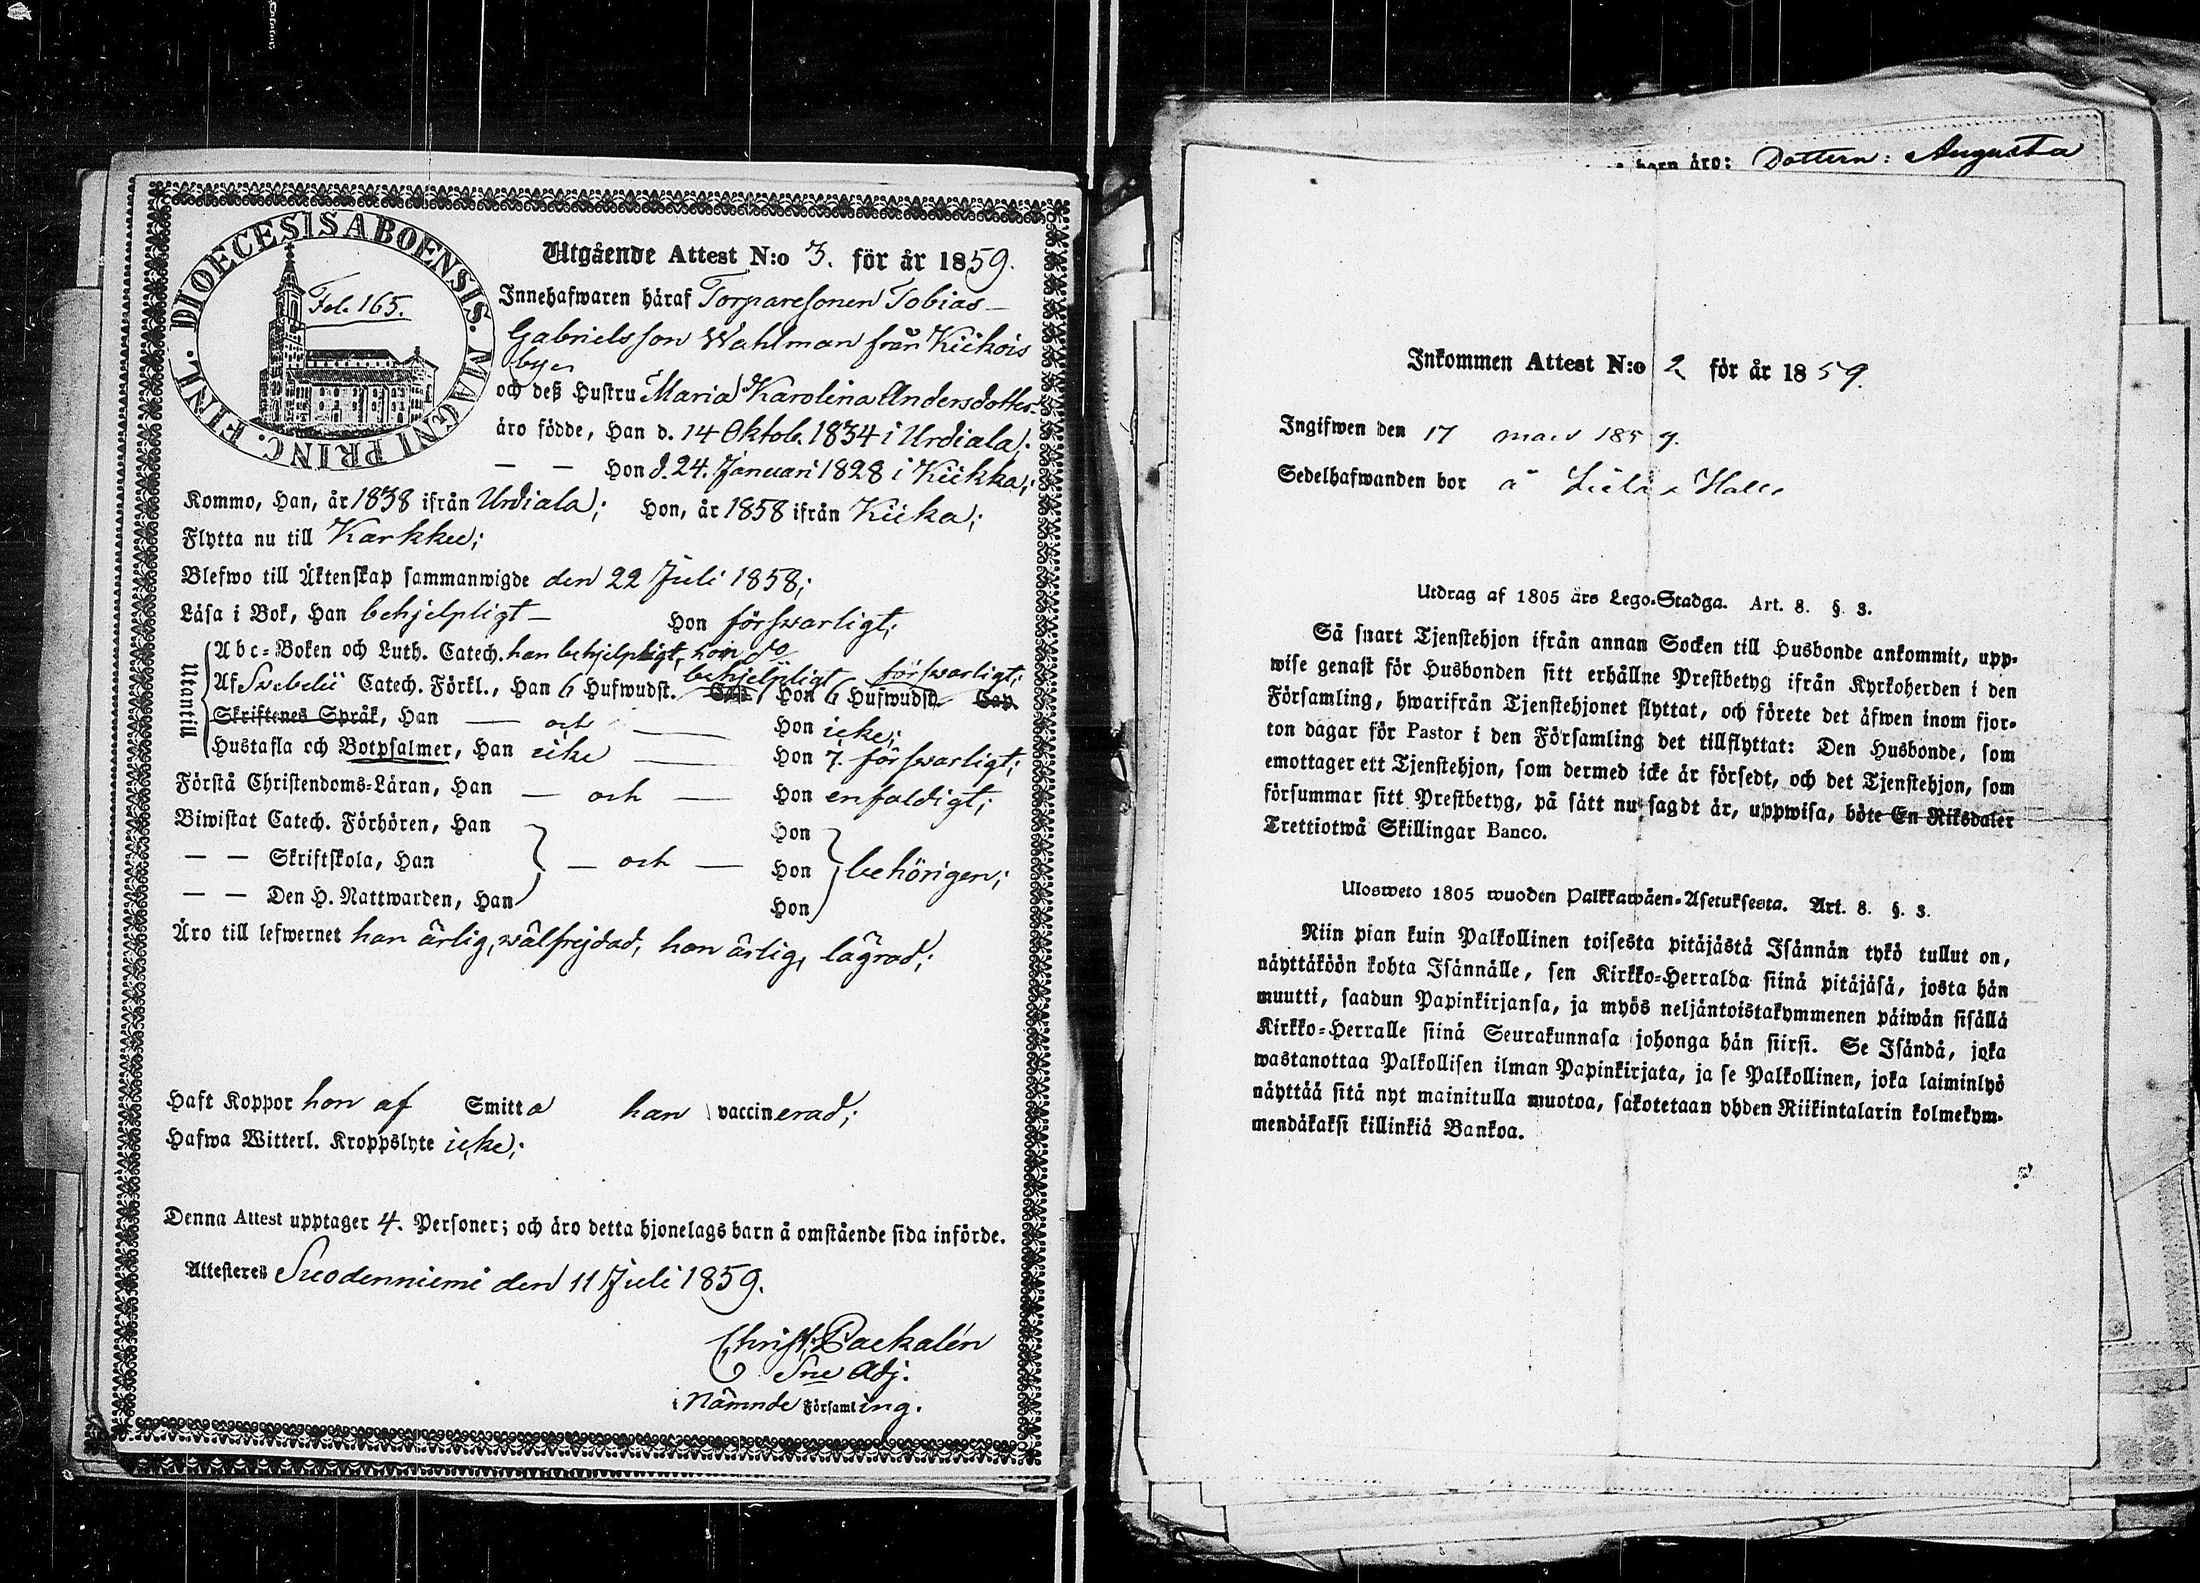 DIOECESIS ABOENSIS. MAGNI PRINC. FINL.
Fol. 165.
Utgående Attest N:o 3. för år 1859.
Innehafwaren häraf Torparesonen Tobias
Gabrielsson Wahlman från Kiikois
by
och deß Hustru Maria Karolina Andersdotter
äro födde, Han d. 14 Oktob. 1834 i Urdiala;
— — Hon d. 24. Januari 1828 i Kiikka;
Kommo, Han, år 1838 ifrån Urdiala; Hon, år 1858 ifrån Kiika;
Flytta nu till Karkku;
Blefwo till Äktenskap sammanwigde den 22 Juli 1858;
Läsa i Bok, Han behjelpligt — Hon försvarligt;
Utantill
Abc-Boken och Luth. Catech. han behjelpligt, hon do
behjelpligt försvarligt;
Af Svebelii Catech. Förkl., Han 6 Hufwudst. Cap. Hon 6 Hufwudst. Cap.
Skriftenes Språk, Han — och — Hon icke;
Hustafla och Botpsalmer, Han icke — Hon 7. försvarligt;
Förstå Christendoms-Läran, Han — och — Hon enfaldigt;
Biwistat Catech. Förhören, Han Hon
— — Skriftskola, Han — och — Hon behörigen;
— — Den H. Nattwarden, Han Hon
Äro till lefwernet han ärlig, wälfrejdad, hon ärlig, lägrad;
Haft Koppor hon af Smitta han vaccinerad;
Hafwa Witterl. Kroppslyte icke;
Denna Attest upptager 4. Personer; och äro detta hjonelags barn å omstående sida införde.
Attesteres Suodenniemi den 11 Juli 1859.
Christ. Packalén
Sne Adj.
i Nämnde Församling.
barn äro: Dottern: Augusta
Inkommen Attest N:o 2 för år 1859.
Ingifwen den 17 1859.
Sedelhafwanden bor å
Utdrag af 1805 års Lego-Stadga. Art. 8. §. 3.
Så snart Tjenstehjon ifrån annan Socken till Husbonde ankommit, upp-
wise genast för Husbonden sitt erhållne Prestbetyg ifrån Kyrkoherden i den
Församling, hwarifrån Tjenstehjonet flyttat, och förete det äfwen inom fjor-
ton dagar för Pastor i den Församling det tillflyttat: Den Husbonde, som
emottager ett Tjenstehjon, som dermed icke är försedt, och det Tjenstehjon, som
försummar sitt Prestbetyg, på sätt nu sagdt är, uppwisa, böte En Riksdaler
Trettiotwå Skillingar Banco.
Ulosweto 1805 wuoden Palkkawäen-Asetuksesta. Art. 8. §. 3.
Niin pian kuin Palkollinen toisesta pitäjästä Isännän tykö tullut on,
näyttäköön kohta Isännälle, sen Kirkko-Herralda siinä pitäjäsä, josta hän
muutti, saadun Papinkirjansa, ja myös neljäntoistakymmenen päiwän sisällä
Kirkko-Herralle siinä Seurakunnasa johonga hän siirsi. Se Isändä, joka
wastanottaa Palkollisen ilman Papinkirjata, ja se Palkollinen, joka laiminlyö
näyttää sitä nyt mainitulla muotoa, sakotetaan yhden Riikintalarin kolmekym-
mendäkaksi killinkiä Bankoa.